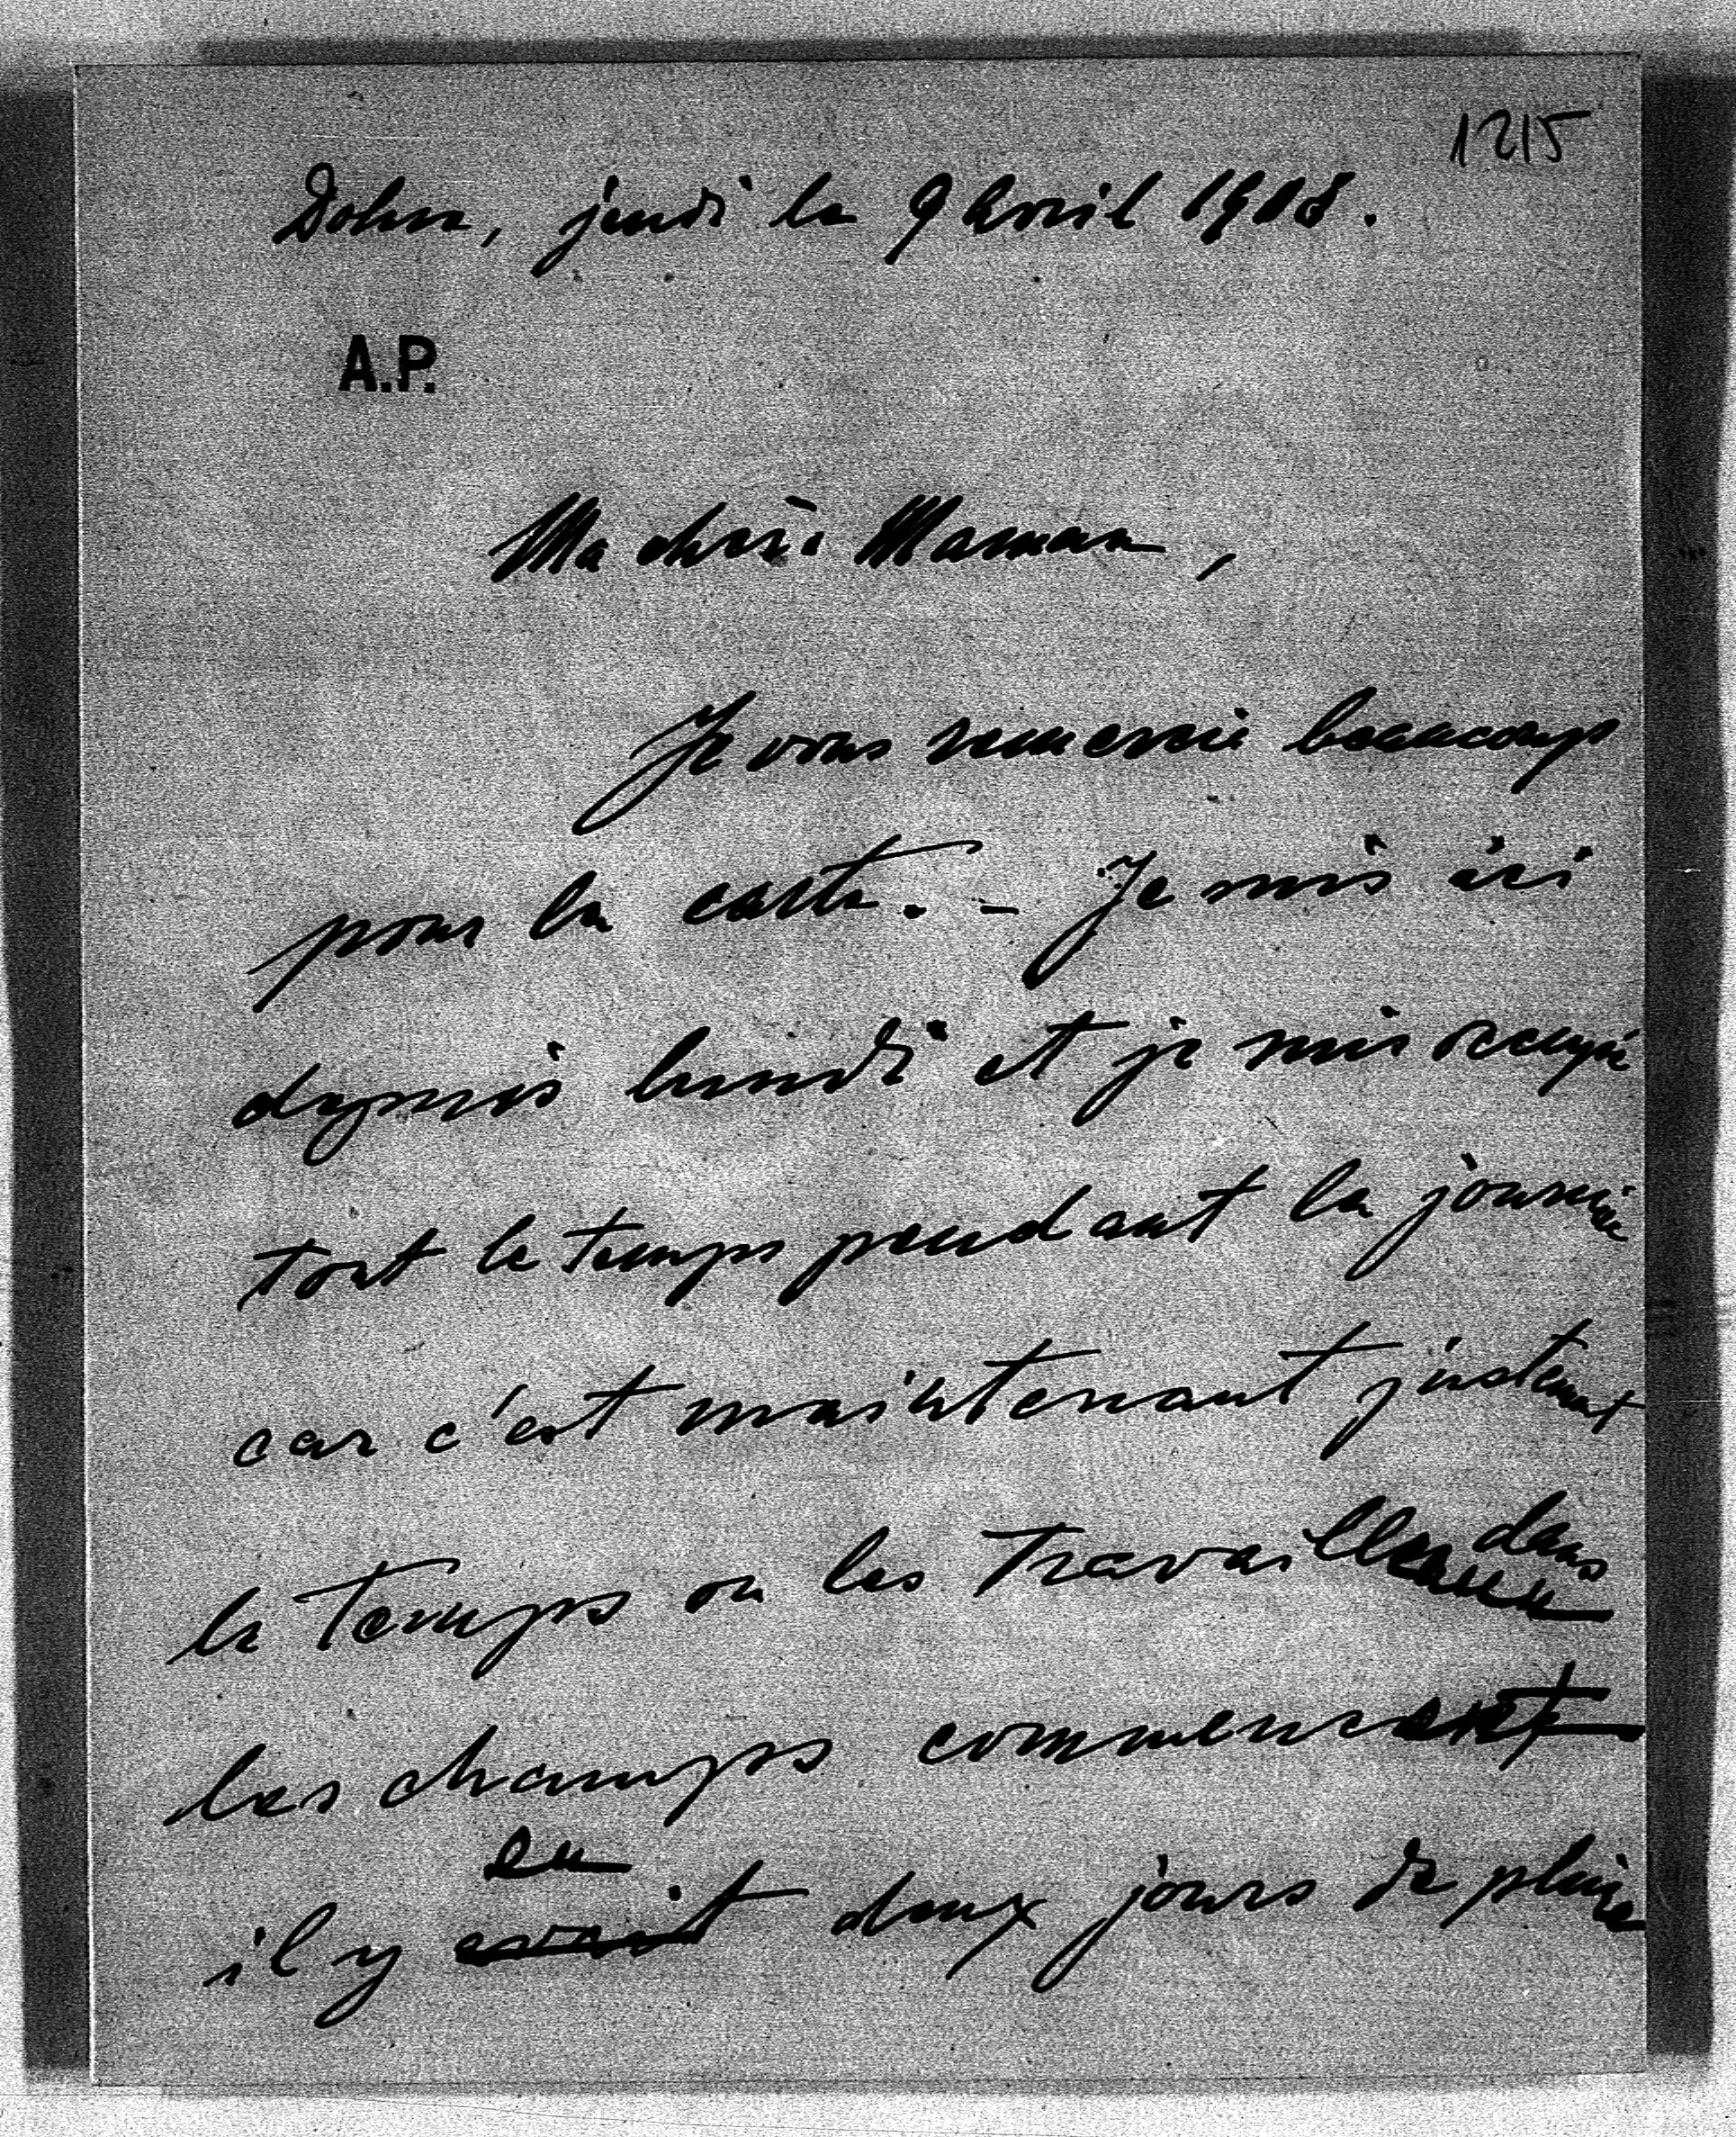 1215
Dolna, jeudi le 9 Avril 1908.
A.P.
Ma chère Maman,
Je vous remercie beaucoup
pour la carte. – Je suis ici
depuis lundi et je suis occupé
tout le temps pendant la journée
car c'est maintenant justement
le temps ou les travailleaux dans
les champs commencent
eu
il y avait deux jours de pluie